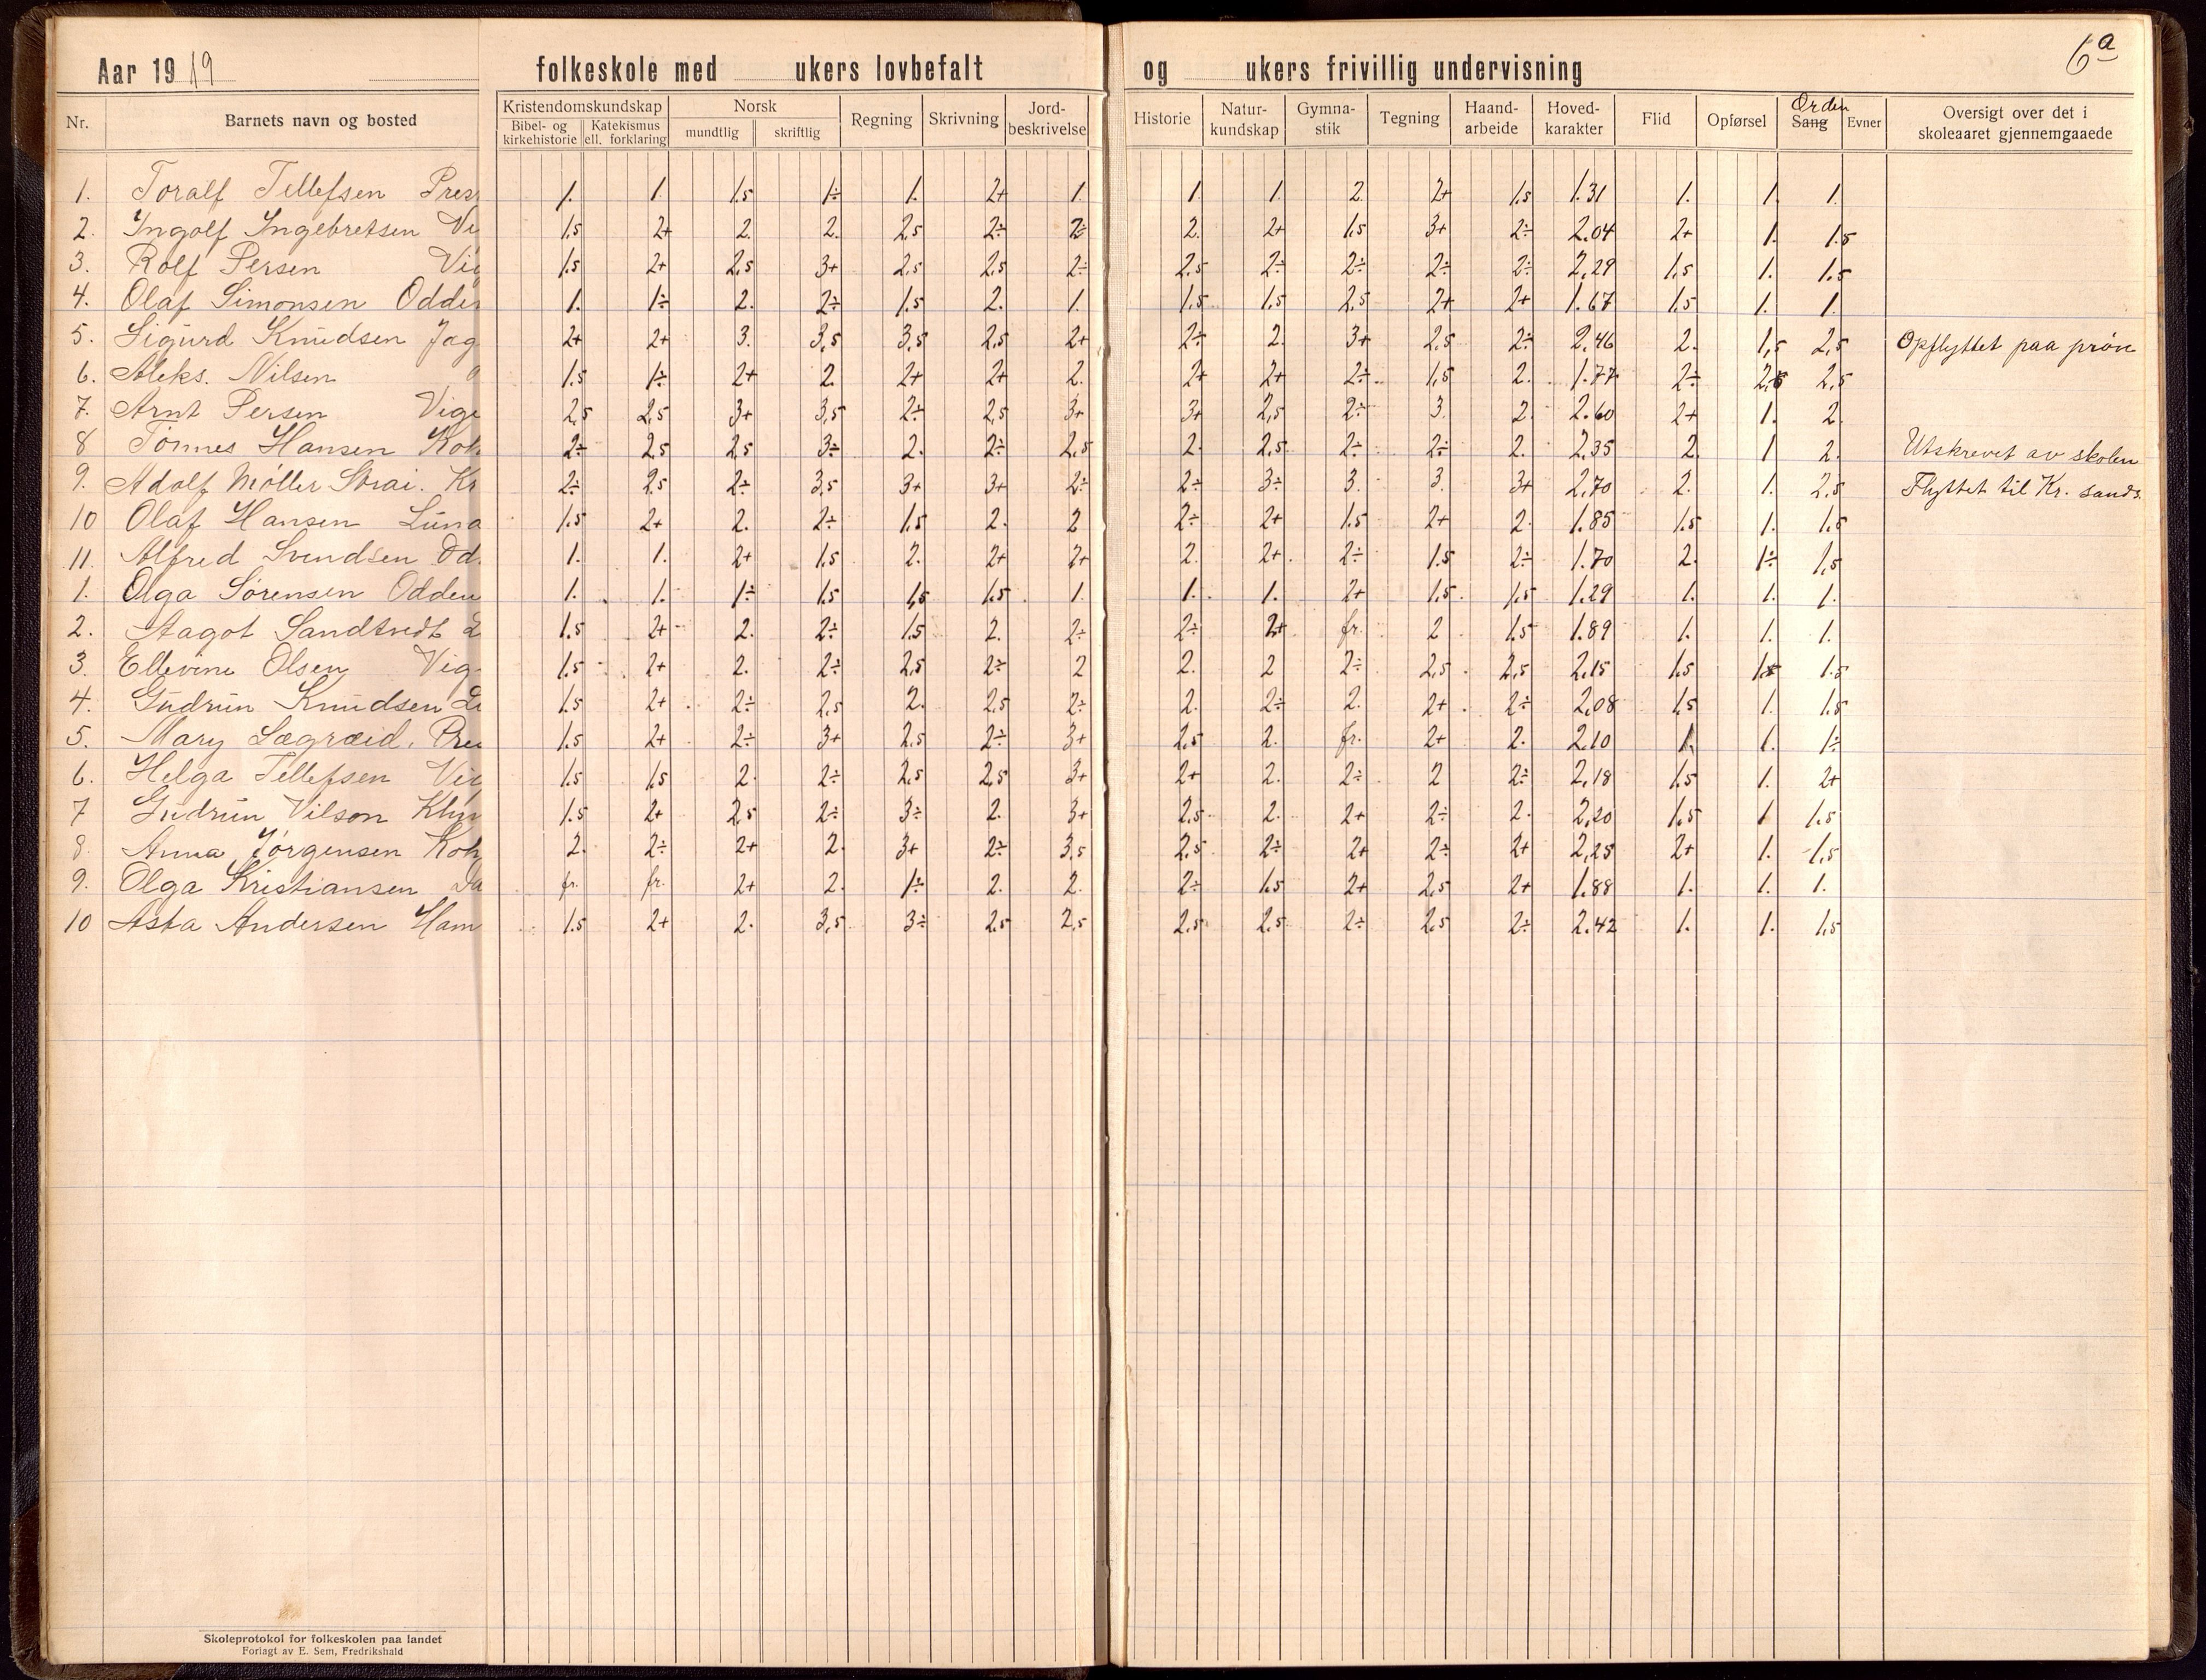 6a
Aar 1919 folkeskole med ukers lovbefalt og ukers frivillig undervisning
Nr. Barnets navn og bosted Kristendomskundskap Bibel- og kirkehistorie Katekismus ell. forklaring Norsk mundtlig skriftlig Regning Skrivning Jord-beskrivelse Historie Natur-kundskap Gymna-stik Tegning Haand-arbeide Hoved-karakter Flid Opførsel Orden Sang Evner Oversigt over det i skoleaaret gjennemgaaede
1. Toralf Tellefsen Pres 1. 1. 1.5 1÷ 1. 2+ 1. 1. 1. 2. 2+ 1.5 1.31 1. 1. 1.
2. Ingolf Ingebretsen Vi 1.5 2+ 2. 2. 2,5 2÷ 2÷ 2. 2+ 1.5 3+ 2÷ 2.04 2+ 1. 1.5
3. Rolf Persen Vig 1.5 2+ 2,5 3+ 2,5 2,5 2÷ 2,5 2÷ 2÷ 2÷ 2÷ 2,29 1,5 1. 1.5
4. Olaf Simonsen Odder 1. 1÷ 2. 2÷ 1.5 2. 1. 1.5 1.5 2,5 2+ 2+ 1.67 1.5 1. 1.
5. Sigurd Knudsen Jag 2+ 2+ 3. 3,5 3,5 2,5 2+ 2÷ 2. 3+ 2,5 2÷ 2,46 2. 1,5 2,5 Opflyttet paa prøve
6. Aleks. Nilsen 1.5 1÷ 2+ 2. 2+ 2+ 2. 2+ 2+ 2÷ 1,5 2. 1.77 2÷ 2,5 2,5
7. Arnt Persen Vige 2,5 2,5 3+ 3,5 2÷ 2,5 3+ 3+ 2,5 2÷ 3. 2. 2.60 2+ 1. 2.
8 Tønnes Hansen Koh 2÷ 2,5 2,5 3÷ 2. 2÷ 2,5 2. 2,5 2÷ 2÷ 2. 2,35 2. 1 2. Utskrevet av skolen
9. Adolf Møller Strai. Kr 2÷ 2,5 2÷ 3,5 3+ 3+ 2÷ 2÷ 3÷ 3. 3. 3+ 2,70 2. 1. 2,5 Flyttet til Kr. sands.
10 Olaf Hansen Luna 1.5 2+ 2. 2÷ 1.5 2. 2 2÷ 2+ 1.5 2+ 2. 1.85 1.5 1. 1.5
11. Alfred Svendsen Od. 1. 1. 2+ 1.5 2. 2+ 2+ 2. 2+ 2÷ 1.5 2÷ 1.70 2. 1÷ 1,5
1. Olga Sørensen Odden 1. 1. 1÷ 1.5 1,5 1.5 1. 1. 1. 2+ 1.5 1.5 1.29 1. 1. 1.
2. Aagot Sandtvedt L 1.5 2+ 2. 2÷ 1.5 2. 2÷ 2÷ 2+ fr. 2 1.5 1.89 1. 1. 1.
3. Ellevine Olsen Vig 1.5 2+ 2. 2÷ 2,5 2÷ 2 2. 2 2÷ 2,5 2,5 2,15 1.5 1.5 1.5
4. Gudrun Knudsen Lu 1.5 2+ 2÷ 2,5 2. 2,5 2÷ 2. 2÷ 2. 2+ 2÷ 2,08 1,5 1. 1.5
5. Mary Lægræid. Pre 1.5 2+ 2÷ 3+ 2,5 2÷ 3+ 2,5 2. fr. 2+ 2. 2,10 1. 1. 1÷
6. Helga Tellefsen Vig 1.5 1.5 2. 2÷ 2,5 2,5 3+ 2+ 2. 2÷ 2 2÷ 2,18 1.5 1. 2+
7 Gudrun Vilson Klyv 1.5 2+ 2,5 2÷ 3÷ 2. 3+ 2,5 2. 2+ 2÷ 2. 2,20 1,5 1 1.5
8. Anna Jørgensen Koh 2. 2÷ 2+ 2. 3+ 2÷ 3,5 2,5 2÷ 2+ 2÷ 2+ 2,25 2+ 1. 1,5
9. Olga Kristiansen fr. fr. 2+ 2. 1÷ 2. 2. 2÷ 1.5 2+ 2,5 2+ 1.88 1. 1. 1.
10 Asta Andersen Ham 1.5 2+ 2. 3,5 3÷ 2,5 2,5 2,5 2,5 2÷ 2,5 2÷ 2.42 1. 1. 1,5
Skoleprotokol for folkeskolen paa landet
Forlagt av E. Sem, Fredrikshald